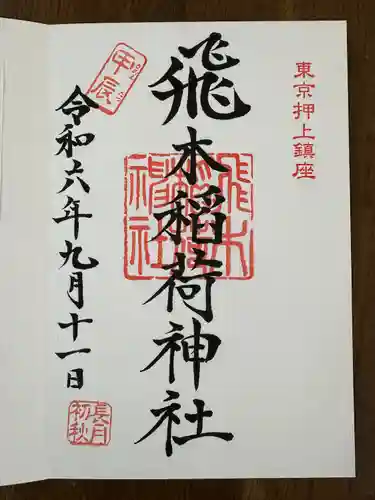 東京押上鎮座
飛木稲荷神社
飛木稲荷神社
甲辰
令和六年九月十一日
長月
初秋